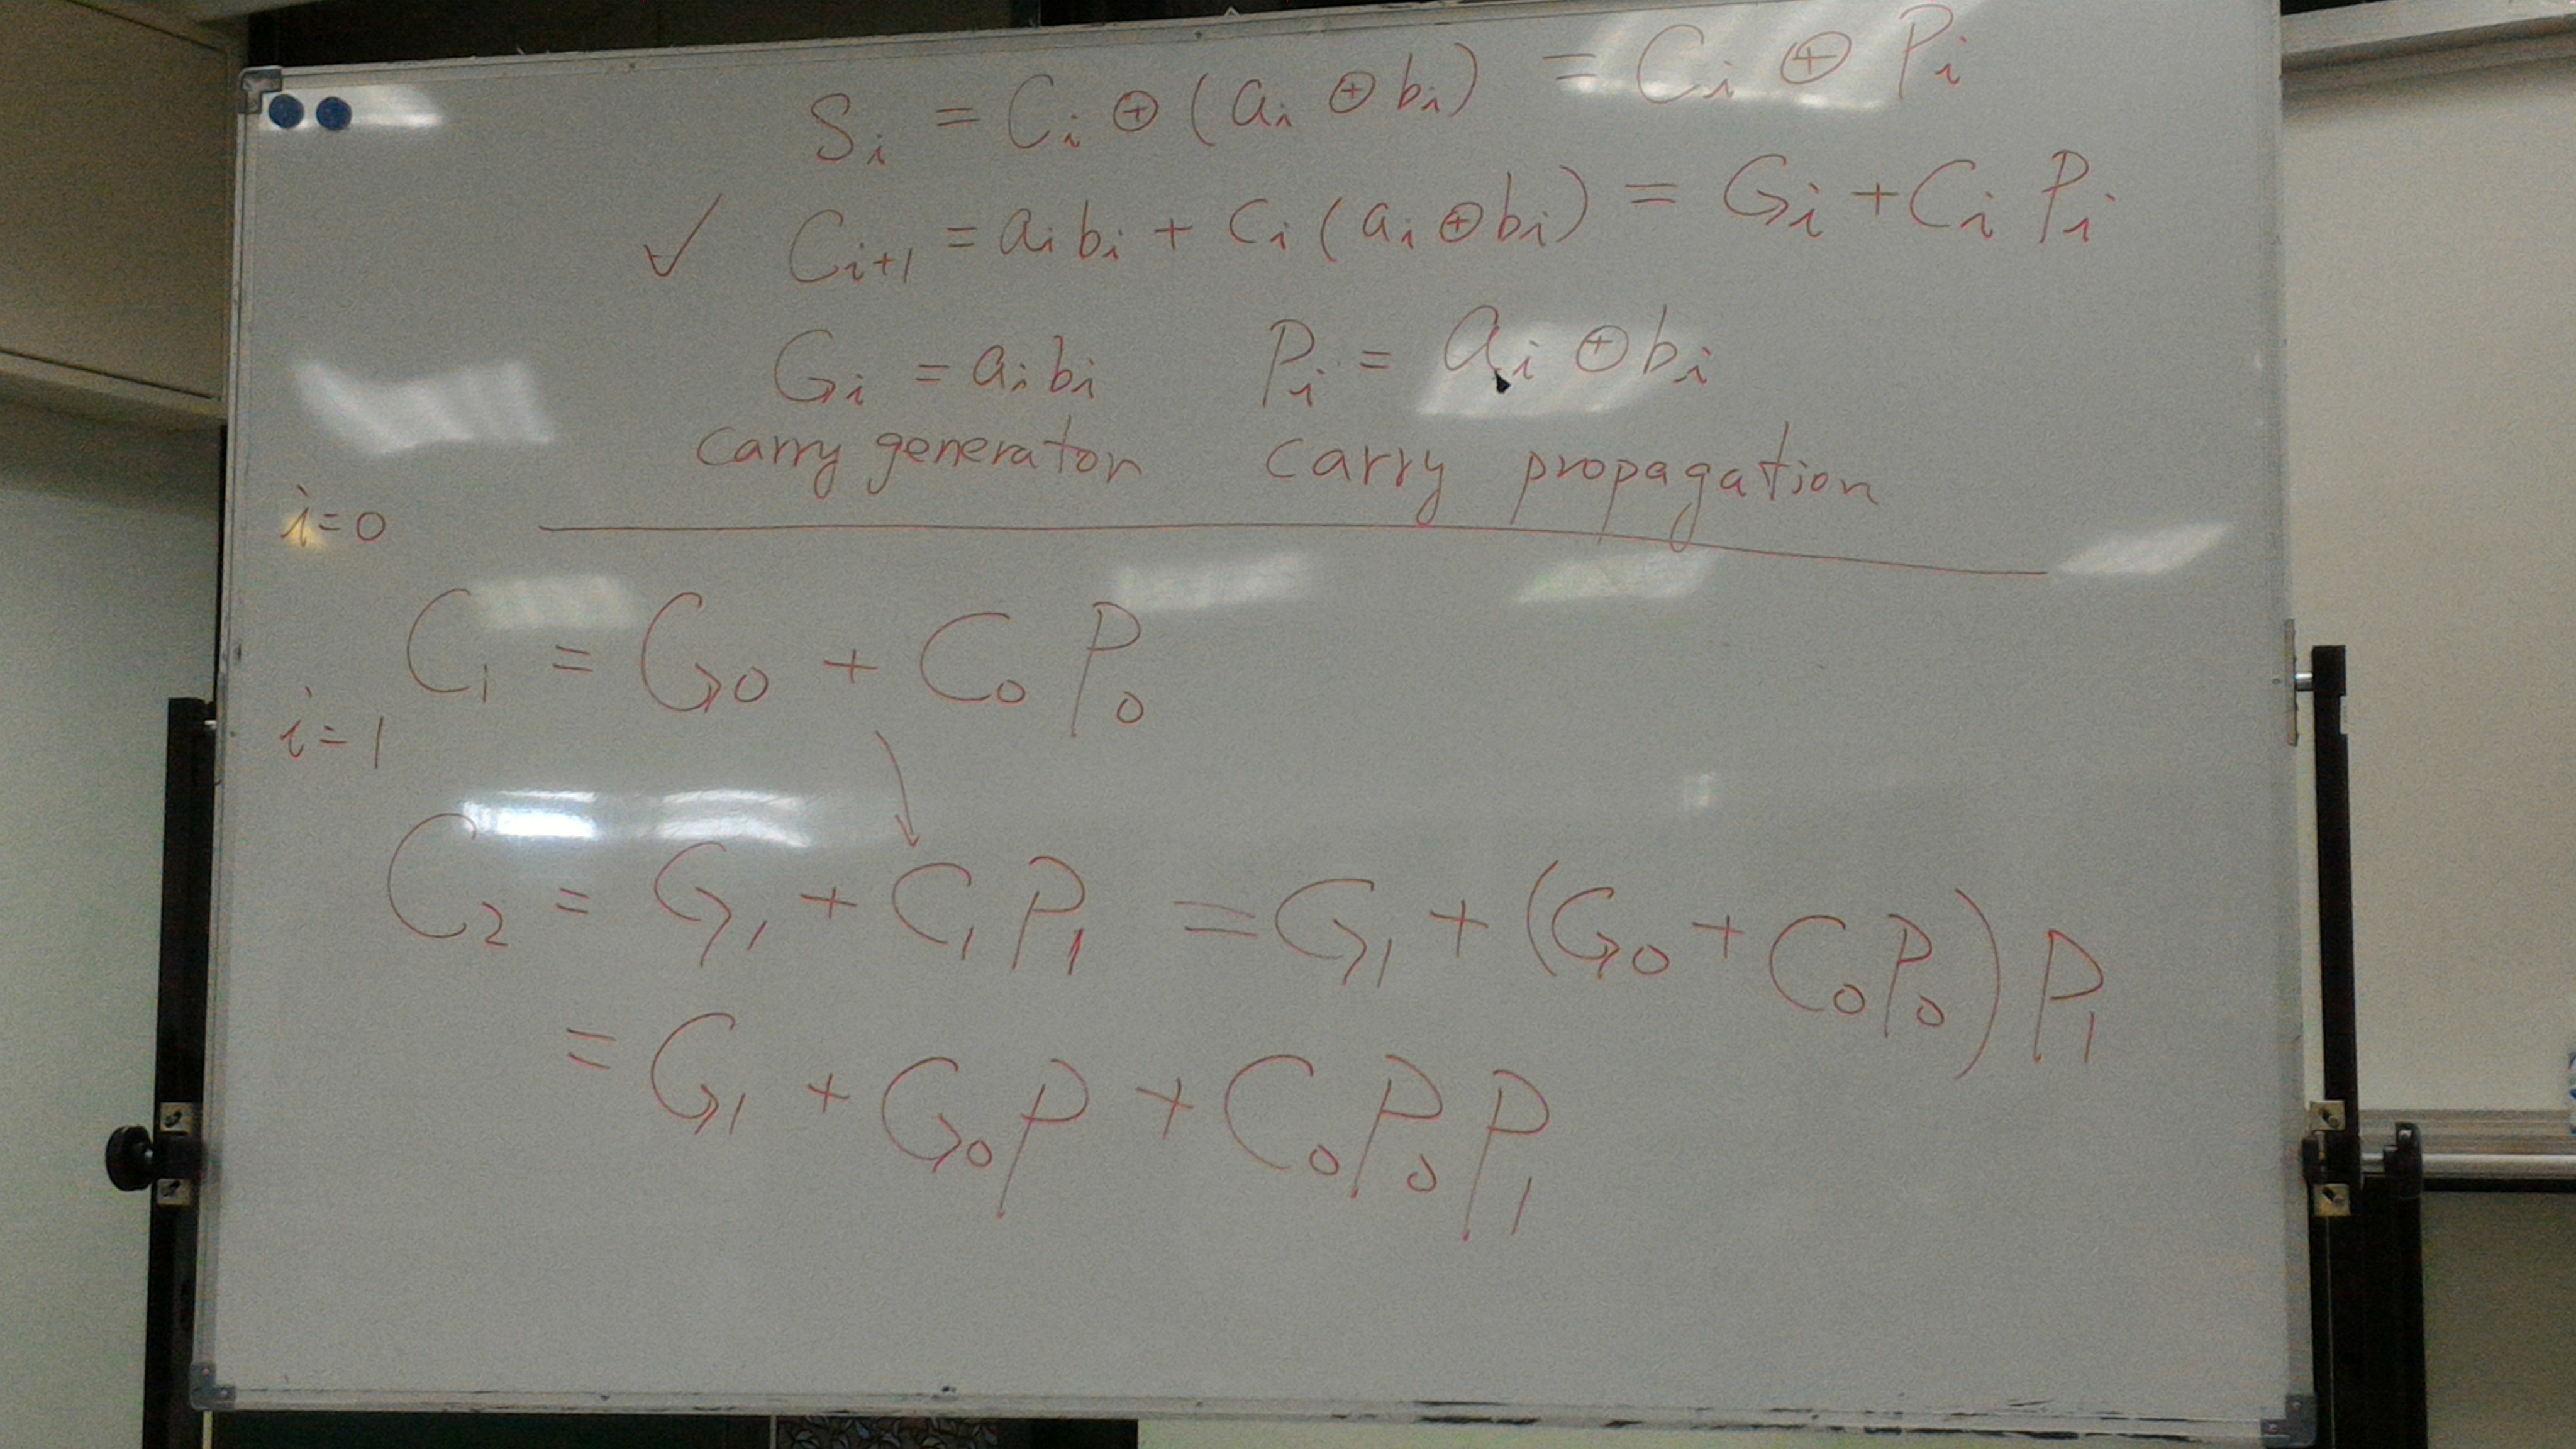 Sᵢ = Cᵢ ⊕ (aᵢ ⊕ bᵢ) = Cᵢ ⊕ Pᵢ
✓ Cᵢ₊₁ = aᵢbᵢ + Cᵢ(aᵢ ⊕ bᵢ) = Gᵢ + CᵢPᵢ
Gᵢ = aᵢbᵢ Pᵢ = aᵢ ⊕ bᵢ
carry generator carry propagation
i=0
C₁ = G₀ + C₀P₀
i=1
C₂ = G₁ + C₁P₁ = G₁ + (G₀ + C₀P₀)P₁
= G₁ + G₀P + C₀P₀P₁